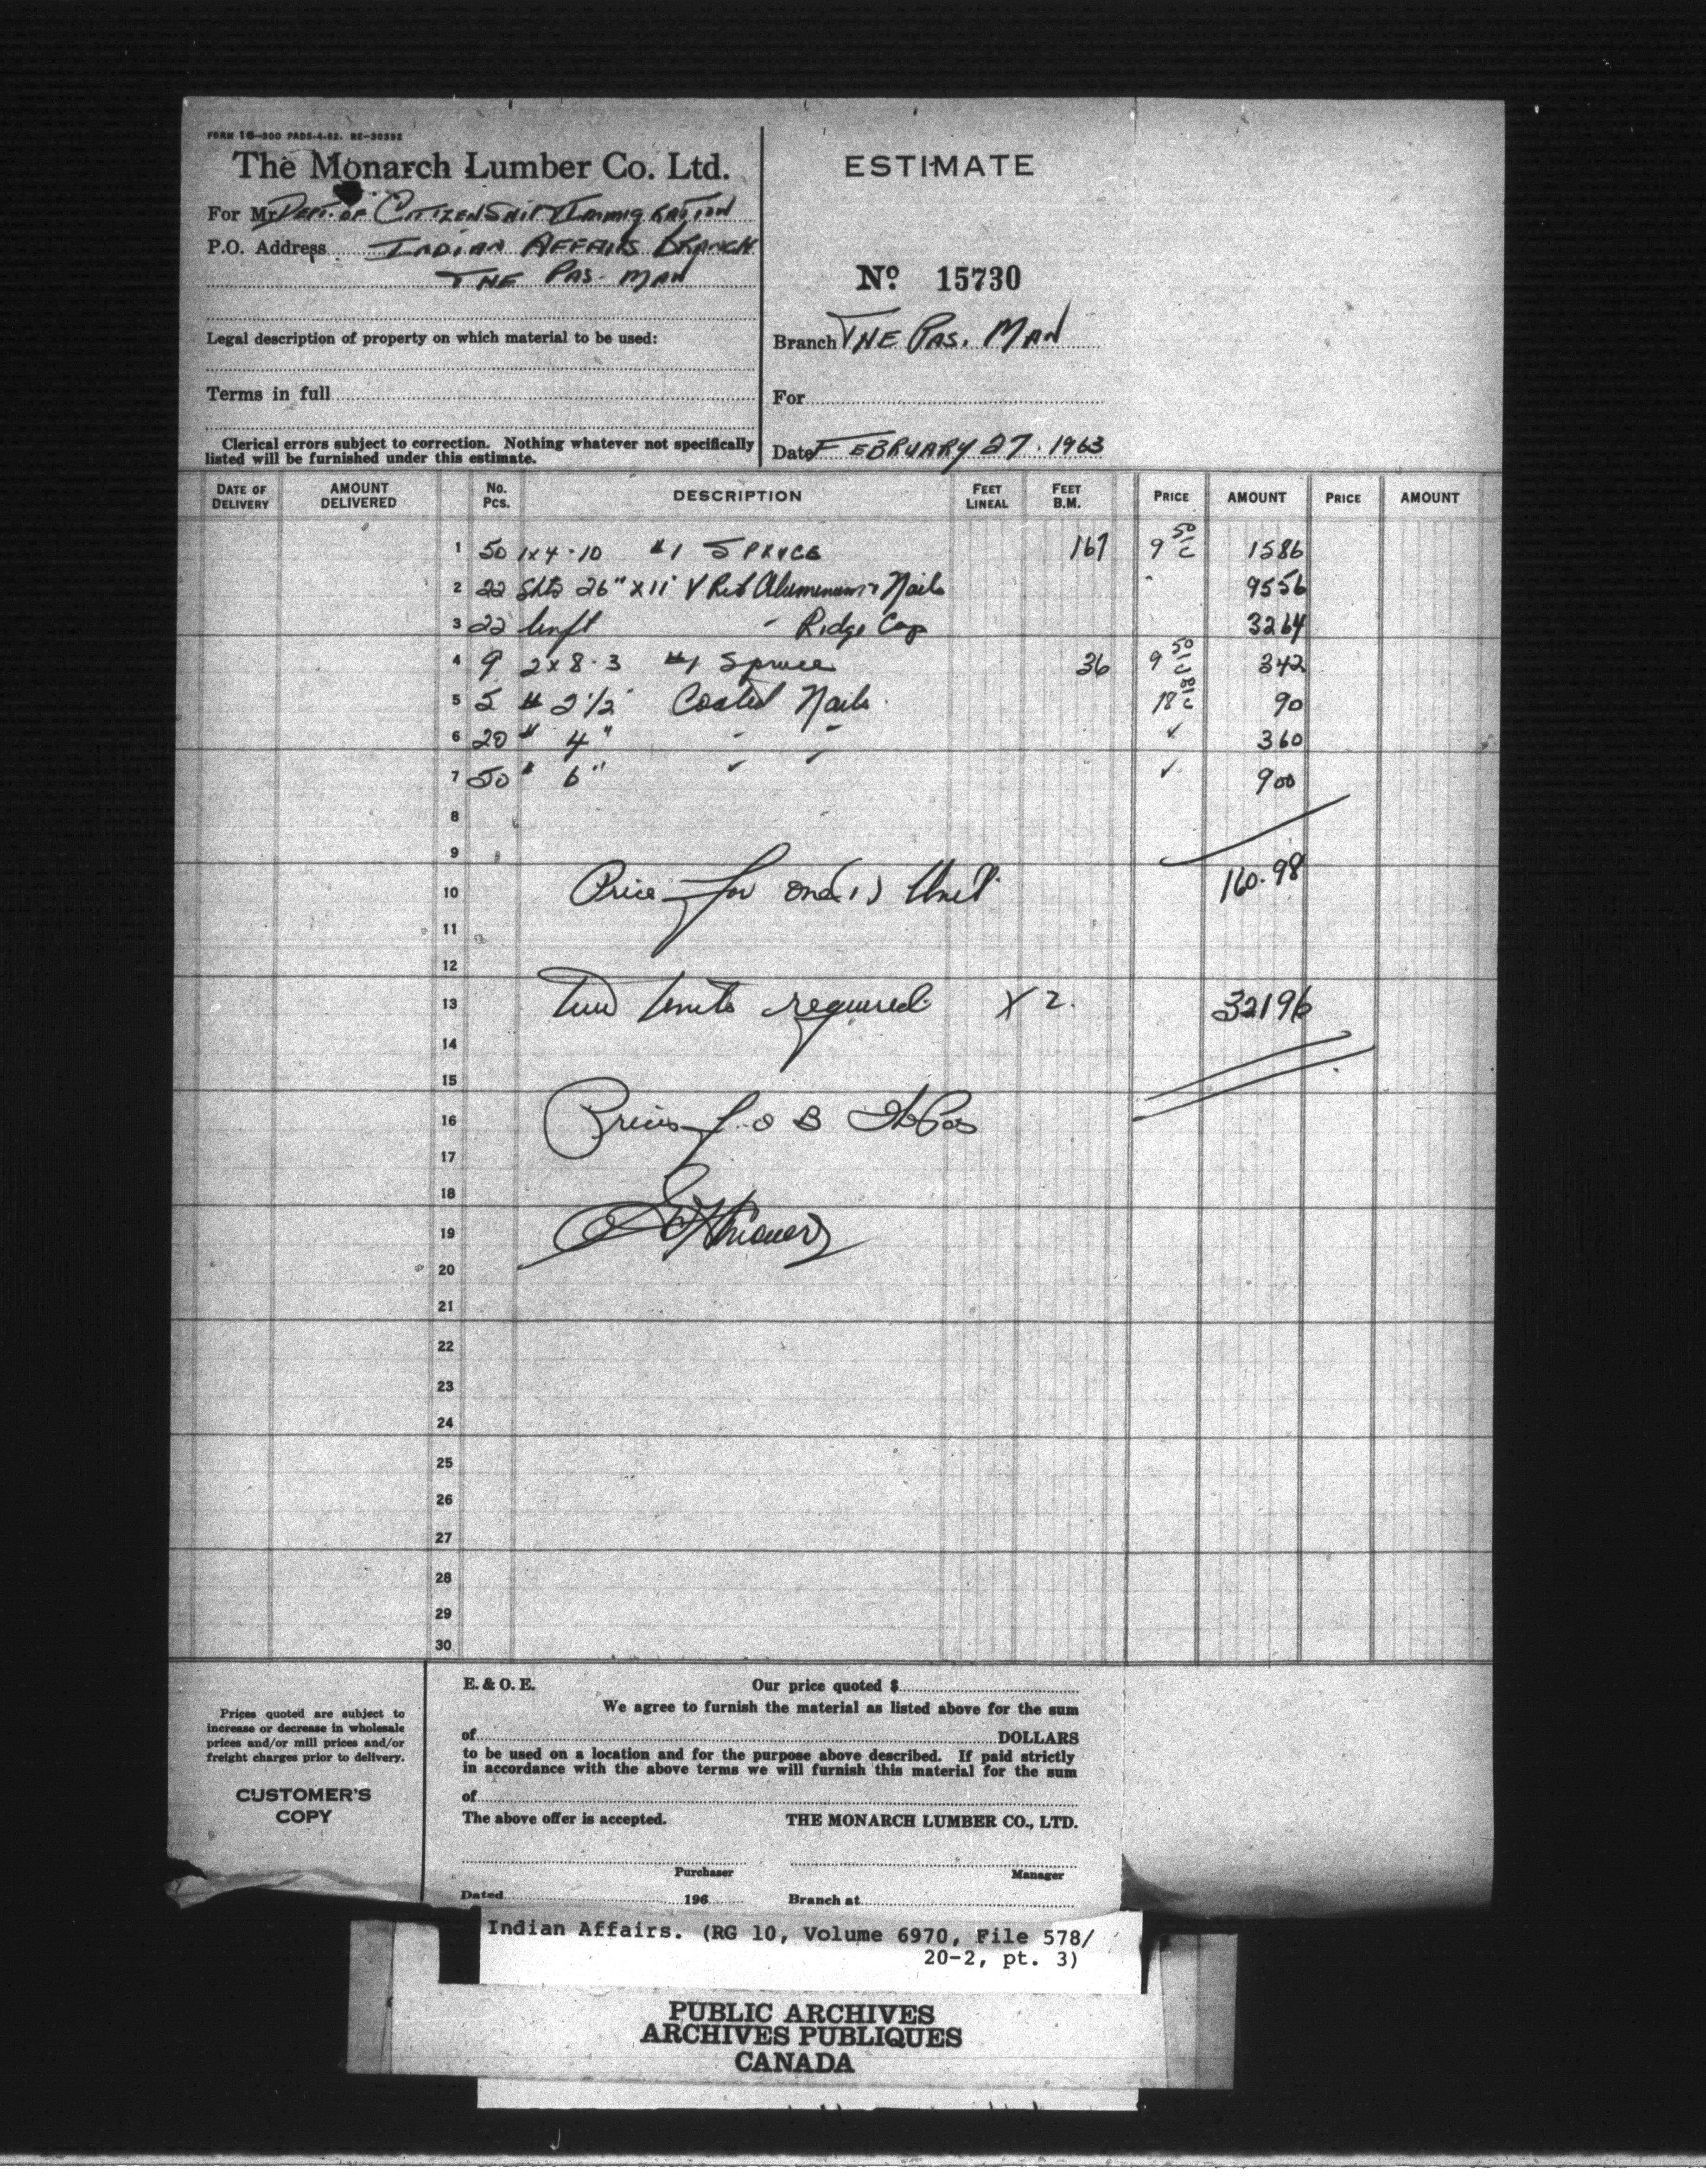 FORM 16-300 PADS-4-62. RE-30392
The Monarch Lumber Co. Ltd.
For Mr. DEPT. OF CITIZENSHIP & IMMIGRATION
P.O. Address INDIAN AFFAIRS BRANCH
THE PAS. MAN
Legal description of property on which material to be used:
Terms in full
Clerical errors subject to correction. Nothing whatever not specifically
listed will be furnished under this estimate.
ESTIMATE
No 15730
Branch THE PAS. MAN
For
Date FEBRUARY 27. 1963
DATE OF DELIVERY AMOUNT DELIVERED No. Pcs. DESCRIPTION FEET LINEAL FEET B.M. PRICE AMOUNT PRICE AMOUNT
1 50 1x4-10 #1 SPRUCE 167 9 50 c 1586
2 22 Shts 26" x 11' V Rib Aluminum & Nails 9556
3 22 linft " Ridge Cap 3264
4 9 2x8-3 #1 Spruce 36 9 50 c 342
5 5 # 2 1/2" Coated Nails 18 00 c 90
6 20 " 4" " " ✓ 360
7 50 " 6" " " ✓ 900
8
9
10 Price for one (1) Unit 160.98
11
12
13 Two Units required X 2. 32196
14
15
16 Prices f.o B The Pas
17
18
19
20
21
22
23
24
25
26
27
28
29
30
Prices quoted are subject to
increase or decrease in wholesale
prices and/or mill prices and/or
freight charges prior to delivery.
CUSTOMER'S
COPY
E. & O. E. Our price quoted $
We agree to furnish the material as listed above for the sum
of DOLLARS
to be used on a location and for the purpose above described. If paid strictly
in accordance with the above terms we will furnish this material for the sum
of
The above offer is accepted. THE MONARCH LUMBER CO., LTD.
Purchaser Manager
Dated 196 Branch at
Indian Affairs. (RG 10, Volume 6970, File 578/
20-2, pt. 3)
PUBLIC ARCHIVES
ARCHIVES PUBLIQUES
CANADA